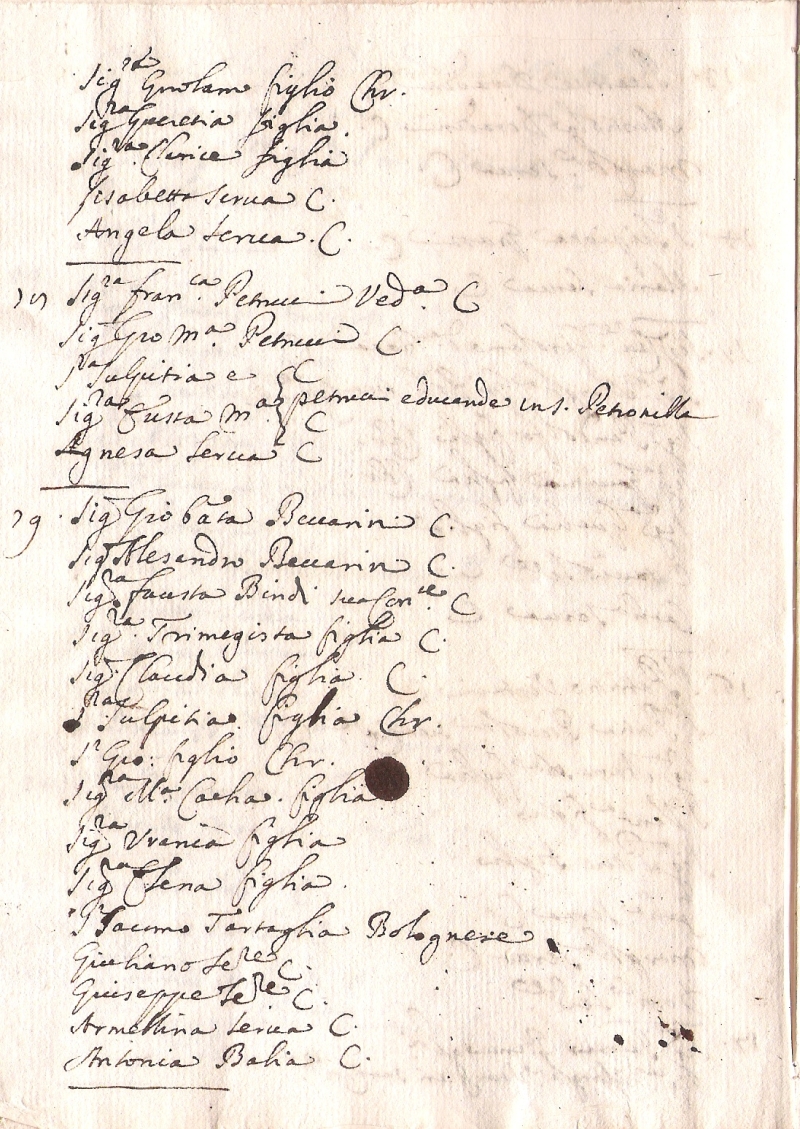 Sig.re Girolamo figlio Chr.
Sig.ra Lucretia figlia.
Sig.ra Clarice figlia
Lisabetta Serva C.
Angela Serva. C.
Sig.ra Fran.ca Petrucci Ved.a C
Sig. Gio M.a Petrucci C.
S.ra Sulpitia e C
Sig.ra M.a C Petrucci educande in S. Petronilla
Agnesa Serva C
79. Sig. Gio Batta Beccarini C.
Sig. Alesandro Beccarini C.
Sig.ra Fausta Bindi sua Con.te C
Sig.ra Trimegista figlia C.
Sig. Claudia figlia. C.
S.ra Sulpitia figlia Chr.
S.r Gio: figlio Chr.
Sig.ra M.a figlia
Sig.ra Urania figlia
Sig.ra Elena figlia.
S.r Iacomo Tartaglia Bolognese
Giuliano Se.re C.
Giuseppe Se.re C.
Armellina Serva C.
Antonia Balia C.